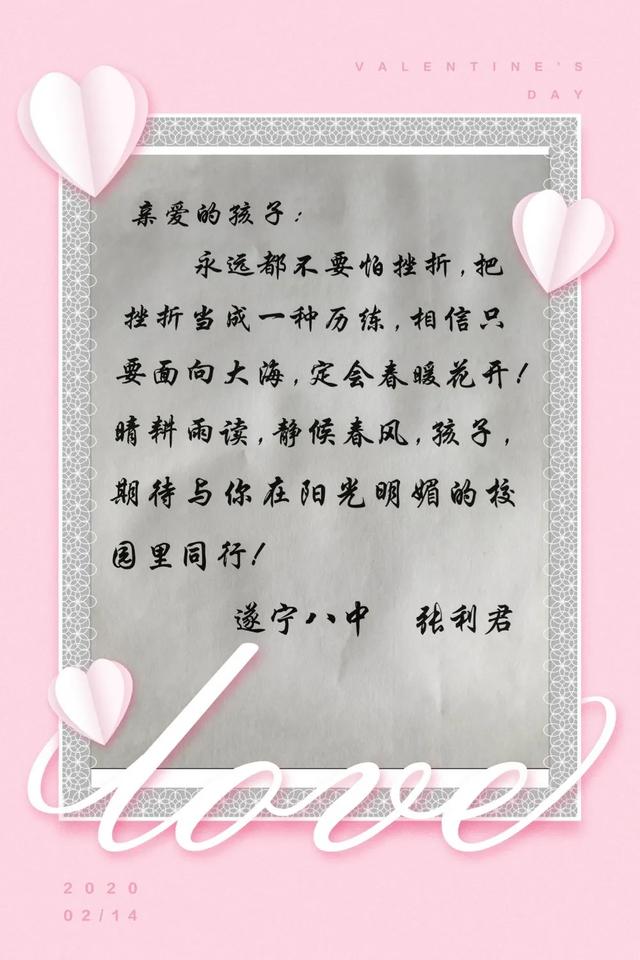 VALENTINE'S
DAY
亲爱的孩子：
永远都不要怕挫折，把
挫折当成一种历练，相信只
要面向大海，定会春暖花开！
晴耕雨读，静候春风，孩子，
期待与你在阳光明媚的校
园里同行！
遂宁八中 张利君
love
2020
02/14